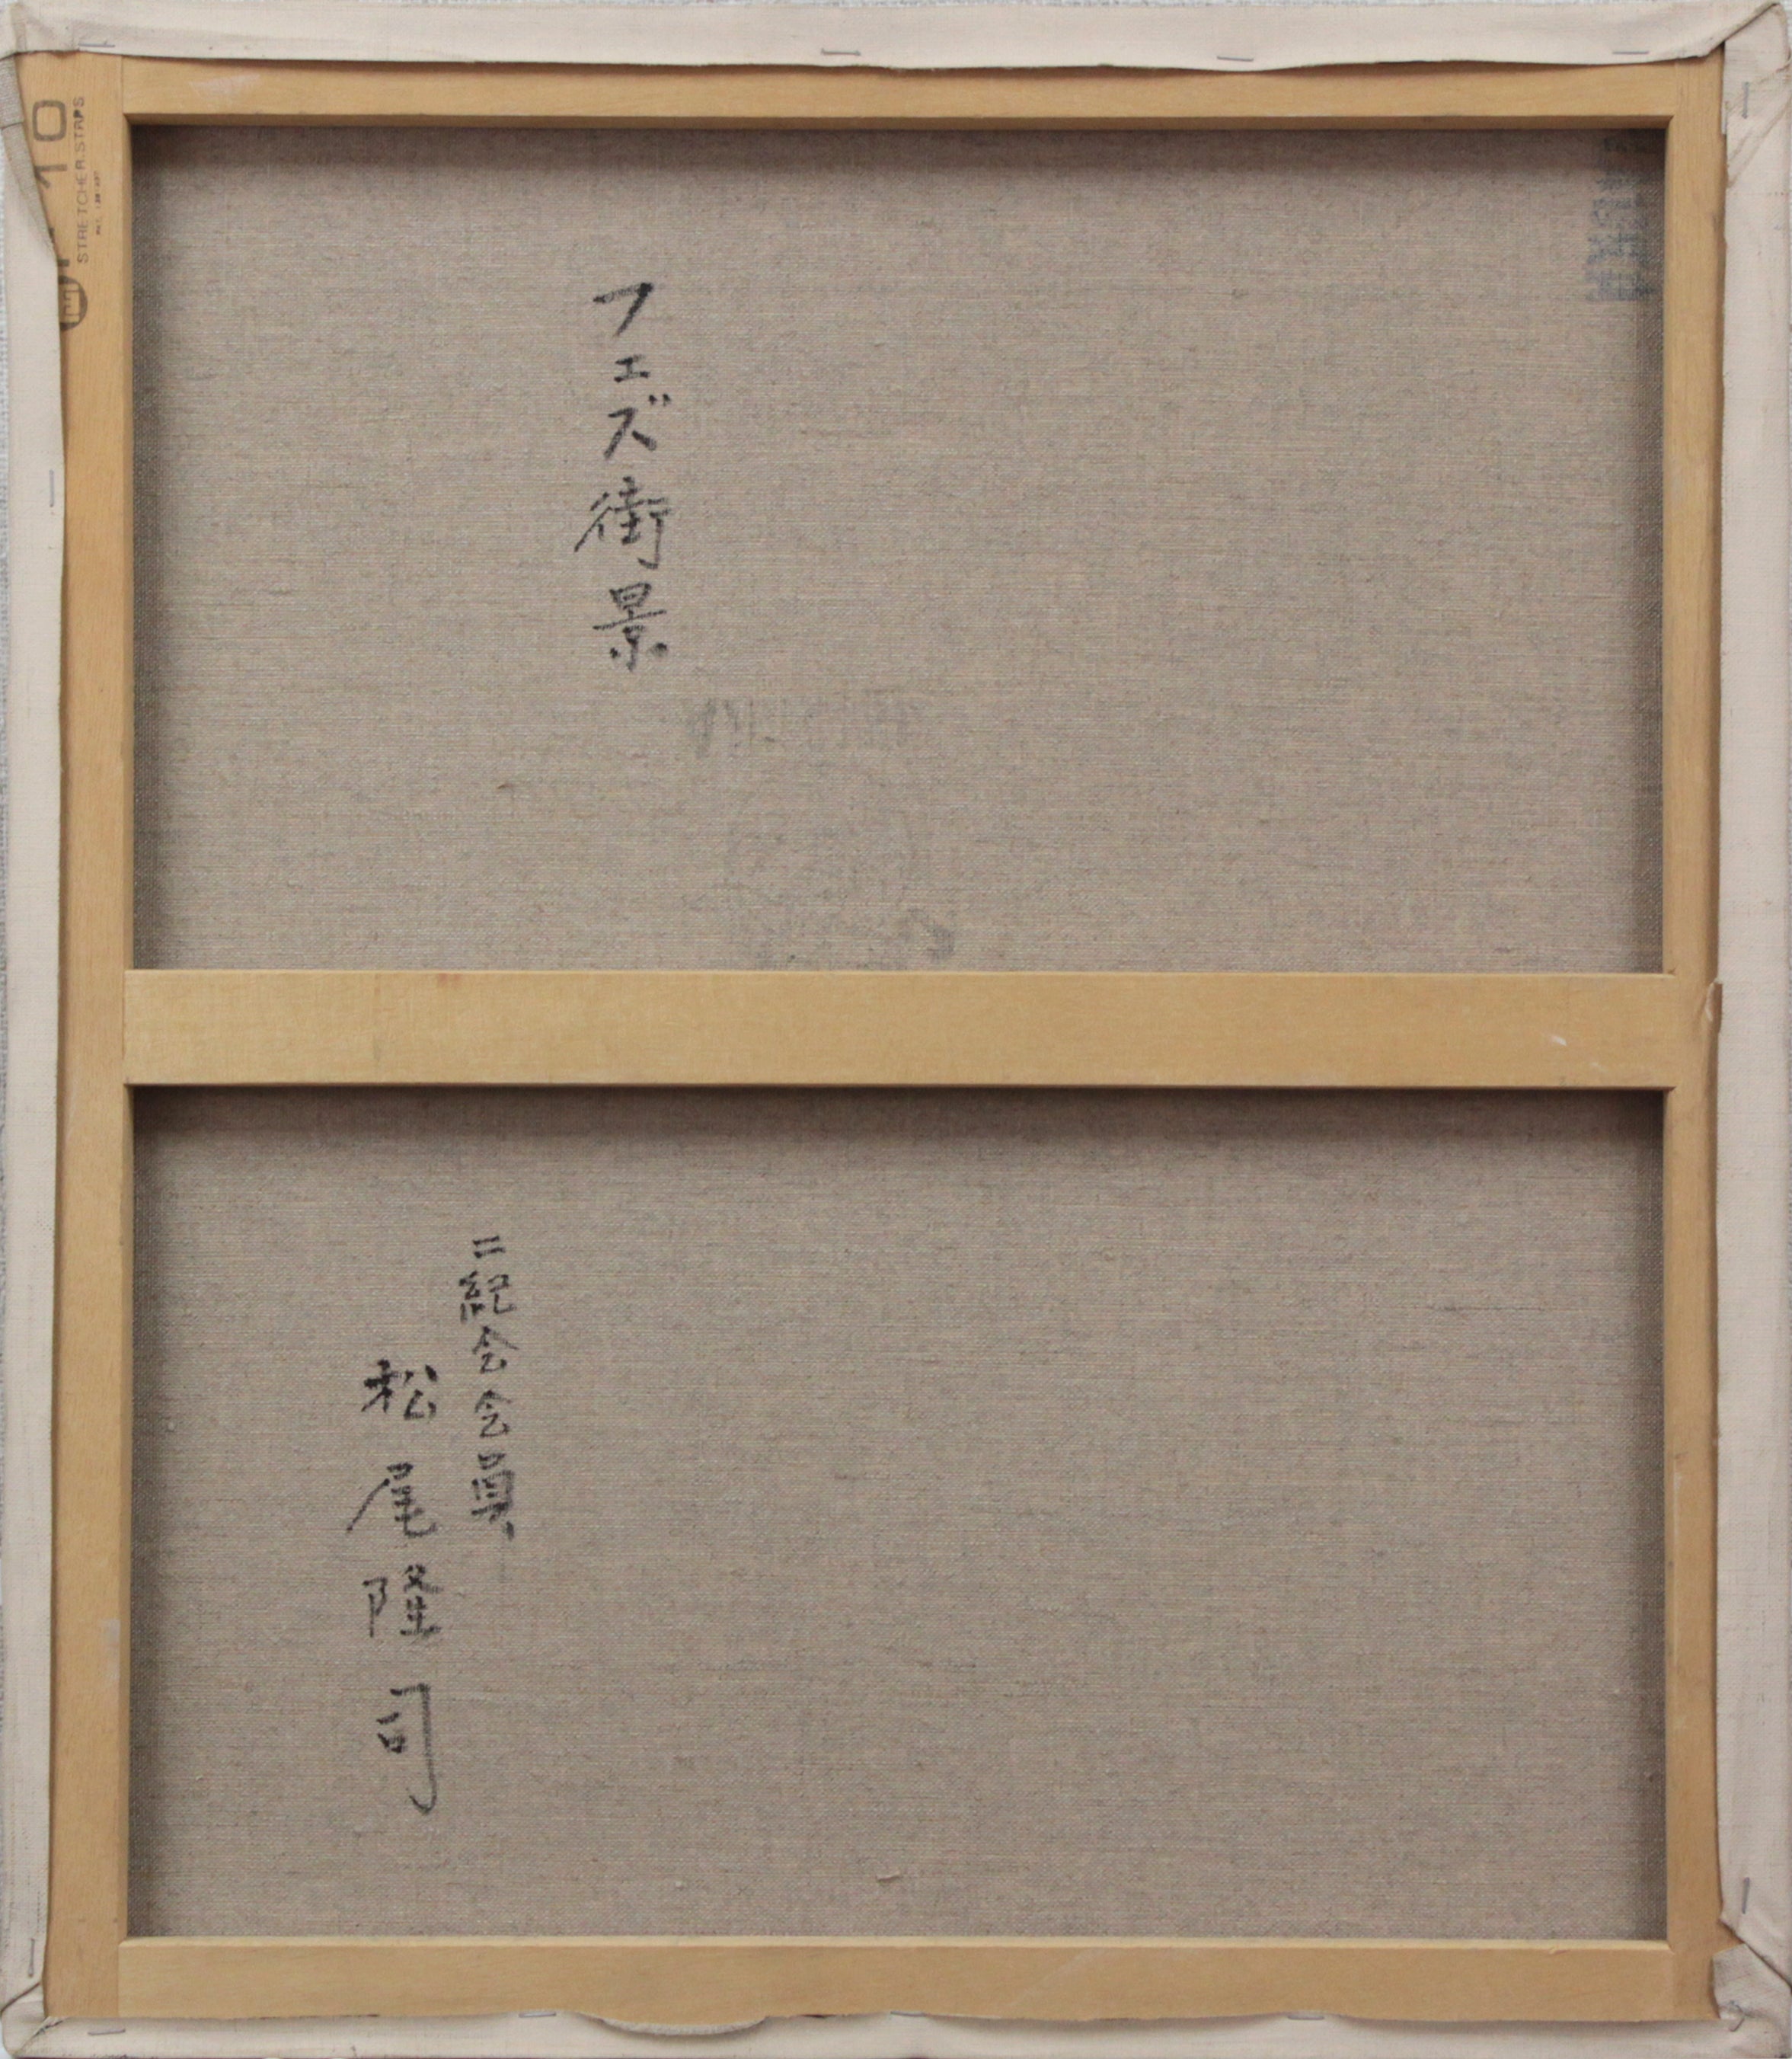 フェズ街景
二紀会会員
松尾隆司
10
STRETCHER STRIPS